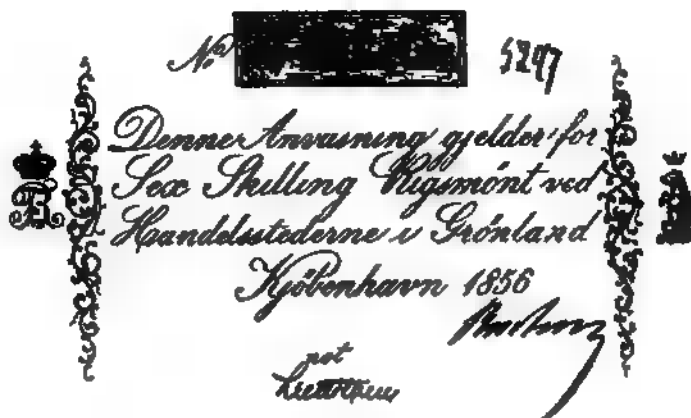 No 5297
Denne Anvaisning gjelder for
Sex Skilling Rigsmönt ved
Handelsstederne i Grönland
Kjöbenhavn 1856
not